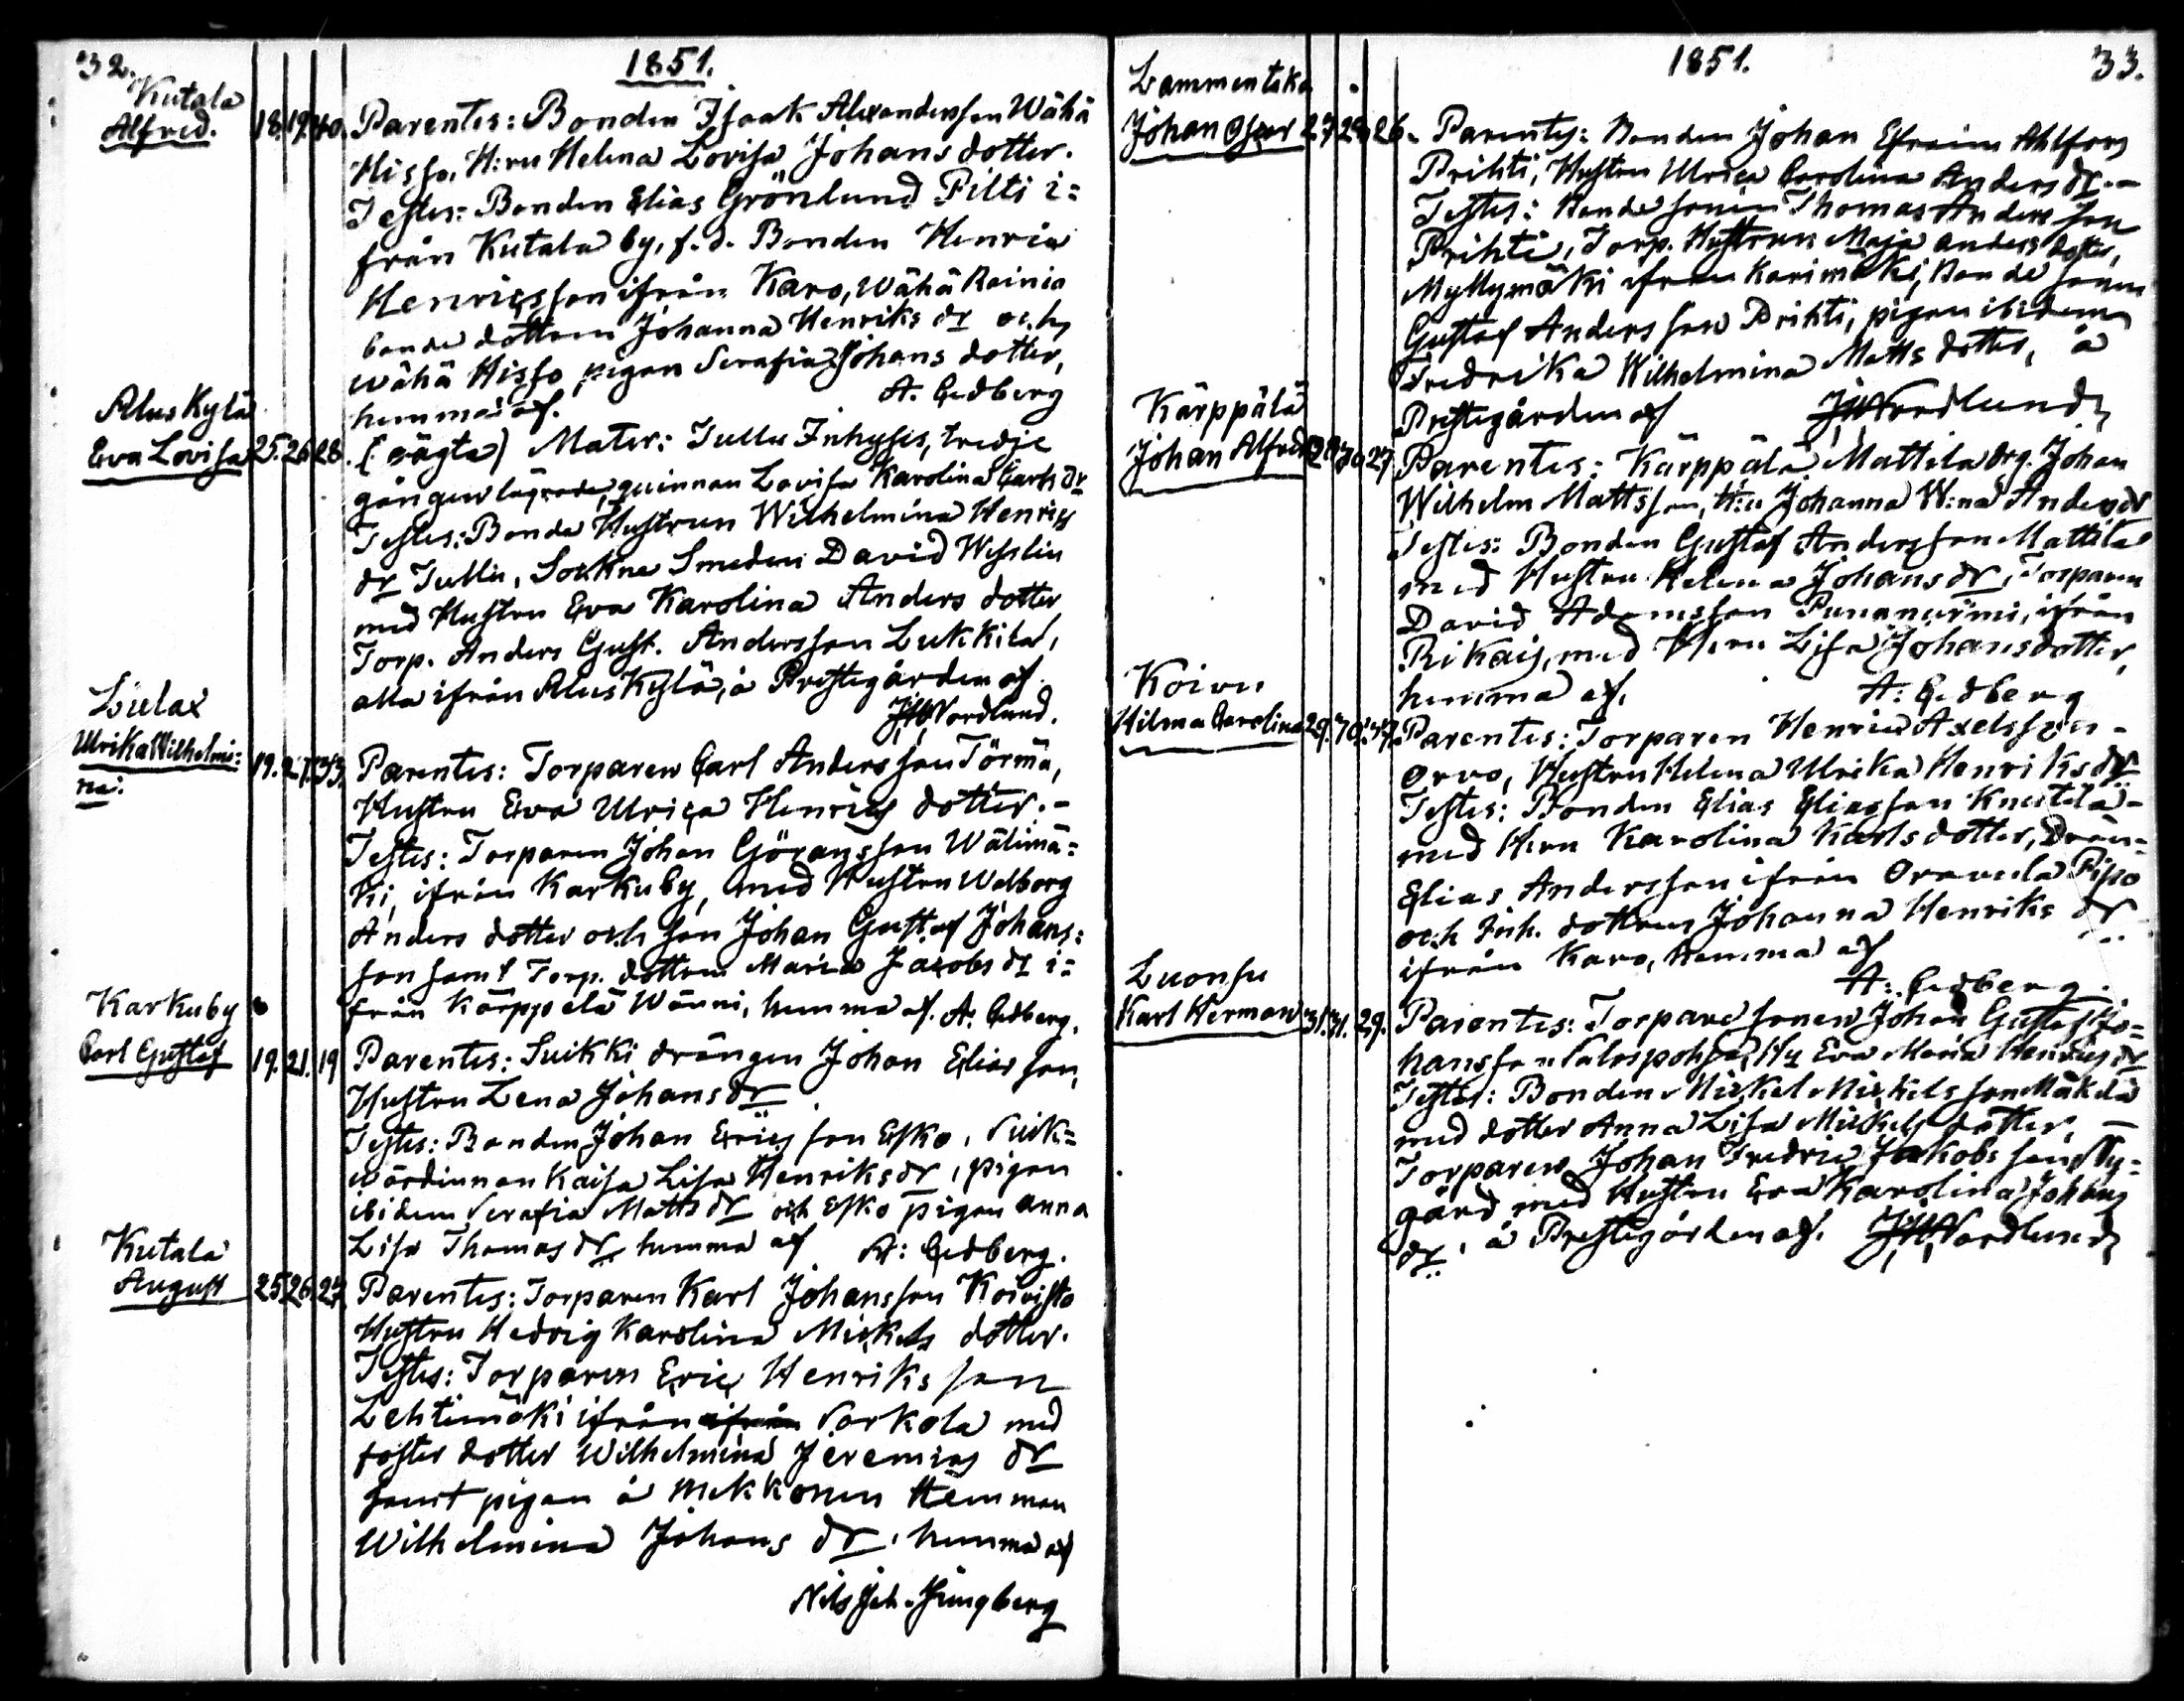 32.
1851.
Kutala
Alfred.
18. 19. 40. Parentes: Bonden Isaak Alexandersson Wähä
Hissa, H:ru Helena Lovisa Johans dotter.
Testes: Bonden Elias Grönlund Pilti i=
från Kutala by, f.d. Bonden Henric
Henricsson ifrån Karo, Wähä Rainio
bonde dottren Johanna Henriks dr och
Wähä Hissa pigan Serafia Johans dotter,
hemma af. A. Cedberg
Alus Kylä
Eva Lovisa 25. 26. 28. (oägta) Mater: Tullu Inhyses, tredje
gången lägrade, quinnan Lovisa Karolina Carls dr
Testes: Bonde Hustrun Wilhelmina Henrics
dr Tullu, Sockne Smeden David Wesslin
med Hustru Eva Karolina Anders dotter
Torp. Anders Gust. Andersson Lukkila,
alla ifrån Alus Kylä, å Prestegården af.
JWNordlund.
Lielax
Ulrika Wilhelmi=
na.
19. 21. 33. Parentes: Torparen Carl Andersson Törmä,
Hustru Eva Ulrica Henrics dotter.-
Testes: Torparen Johan Göransson Wälimä=
ki, ifrån Karkuby, med Hustru Walborg
Anders dotter och son Johan Gustaf Johans=
son samt Torp. dottren Maria Jacobs dr i=
från Kärppelä Wänni, hemma af. A. Cedberg.
Karkuby
Carl Gustaf 19. 21. 19 Parentes: Suikki drängen Johan Eliasson,
Hustru Lena Johans dr
Testes: Bonden Johan Ericsson Esko, Suik=
wärdinnan Kaisa Lisa Henriks dr, pigan
ibidem Serafia Matts dr och Esko pigan Anna
Lisa Thomas dr hemma af A: Cedberg.
Kutala
August 25. 26. 27. Parentes: Torparen Karl Johansson Koivisto
Hustru Hedvig Karolina Mickels dotter.
Testes: Torparen Eric Henriksson
Lehtimäki ifrån ifrån Sorkola med
foster dotter Wilhelmina Jeremias dr
samt pigan å Mekkonen Hemman
Wilhelmina Johans dr, hemma af
Nils Joh. Ljungberg
1851.
33.
Lammentaka
Johan Oscar 27. 29. 26. Parentes: Bonden Johan Efraim Ahlfors
Prihti, Hustru Ulrica Carolina Anders dr.-
Testes: Bonde sonen Thomas Andersson
Prihti, Torp. Hustrun Maja Anders dotter,
Myllymäki ifrån Karimäki, Bonde sonen
Gustaf Andersson Prihti, pigan ibidem
Fredrika Wilhelmina Matts dotter, å
Prestegården af JWNordlund
Kärppälä
Johan Alfred 28. 30. 27 Parentes: Kärppälä Mattila drg. Johan
Wilhelm Mattsson, H:u Johanna W:na Anders dr
Testes: Bonden Gustaf Andersson Mattila
med Hustru Helena Johans dr, Torparen
David Adamsson Punanurmi, ifrån
Rikais, med H:ru Lisa Johansdotter,
hemma af. A: Cedberg
Koivu
Hilma Carolina 29. 30. 37. Parentes: Torparen Henric Axelsson-
Orvo, Hustru Helena Ulrika Henriks dr
Testes: Bonden Elias Eliasson Knuutila-
med H:ru Karolina Karls dotter, Drän=
Elias Andersson ifrån Oravula Pispo
och Inh. dottren Johanna Henriks dr
ifrån Karo, hemma af
A: Cedberg.
Luonsu
Karl Herman 31. 31. 29. Parentes: Torpare sonen Johan Gustaf Jo=
hansson Salospohja, Hu Eva Maria Henrics dr
Testes: Bonden Mickel Mickelsson Mäkelä
med dotter Anna Lisa Mickels dotter,-
Torparen Johan Fredric Jakobsson Ny=
gård med Hustru Eva Karolina Johans
dr, å Prestegården af. JWNordlund